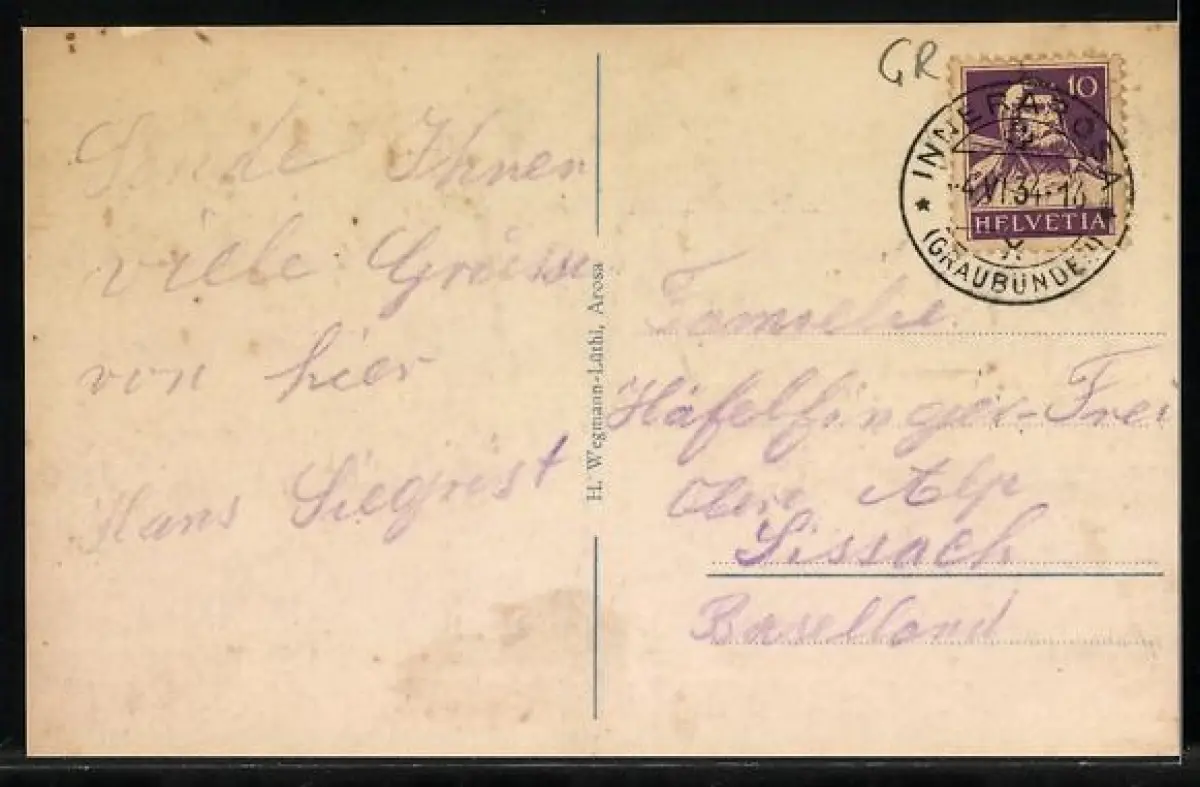 Sende Ihnen
viele Grüsse
von hier
Hans Siegrist
H. Wegmann-Lüthi, Arosa
GR
10
HELVETIA
INNERAROSA
-4.VI.34-14
(GRAUBÜNDEN)
Familie
Häfelfinger-Frei
Obere Alp
Sissach
Baselland